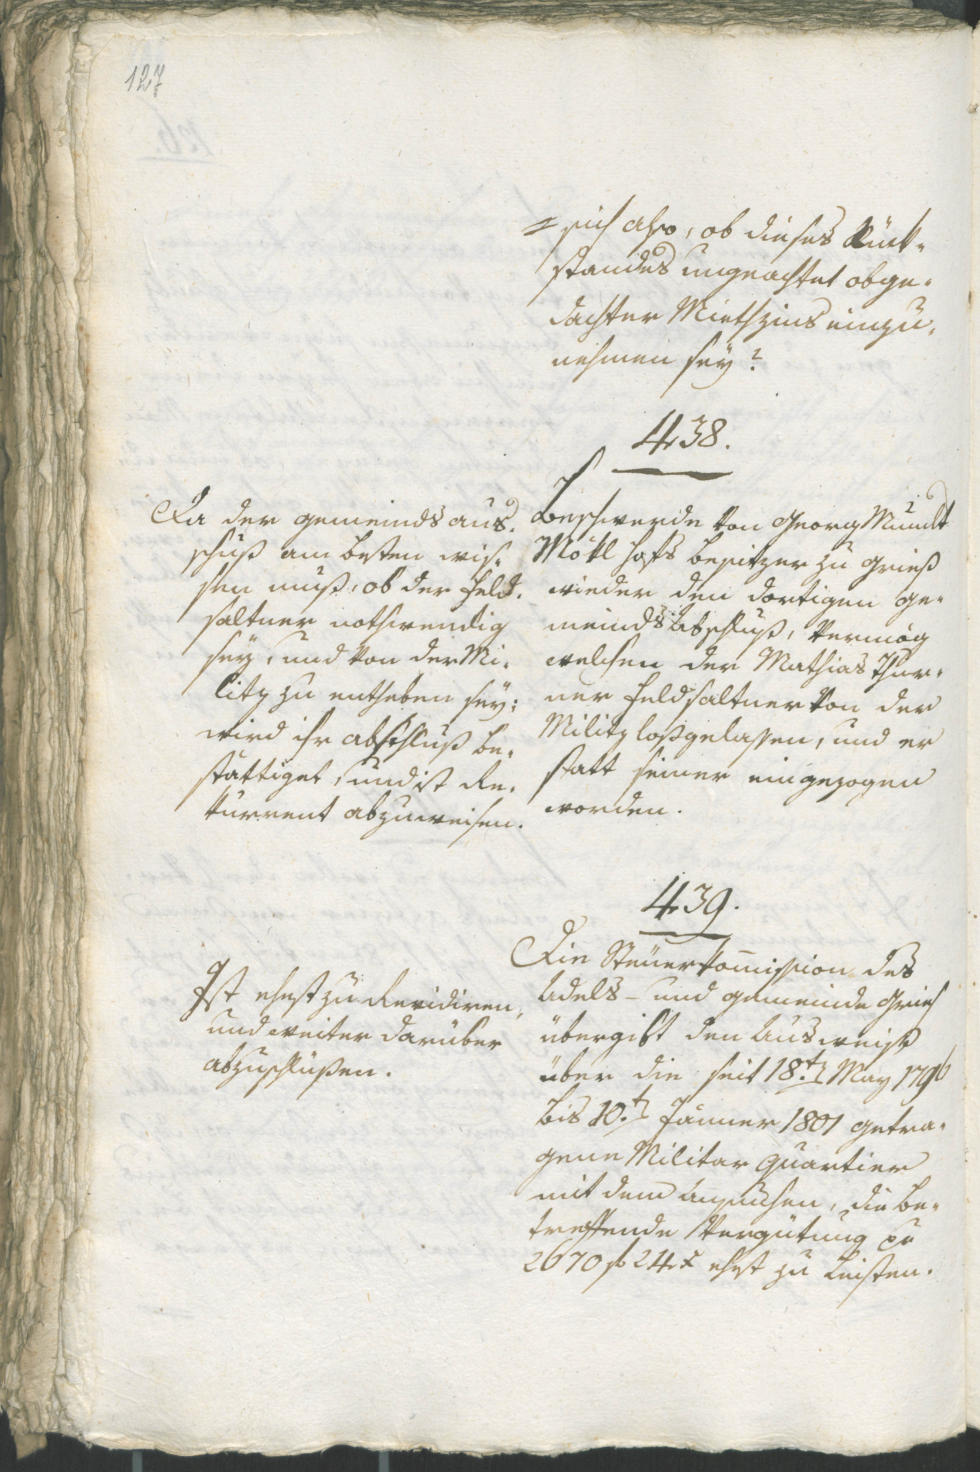 127
sich also, ob dieses Rück-
standes ungeachtet obge-
dachter Miethzins einzu-
nehmen sey?
438.
Da der gemeinds aus-
schuß am besten wis-
sen muß, ob der Feld-
saltner nothwendig
sey, und von der Mi-
litz zu entheben sey;
wird ihr abschluß be-
stättiget, und ist Re-
kurrent abzuweisen.
Beschwerde von Georg Mumelt
Mökl hofs besitzer zu Grieß
wieder den dortigen ge-
meinds Abschluß, vermög
welchen der Mathias Thur-
ner Feldsaltner von der
Militz loßgelassen, und er
statt seiner eingezogen
worden.
439.
Ist ehest zu Revidiren,
und weiter darüber
abzuschlüßen.
Die Steuerkom̄ission des
Adels- und gemeinde Gries
übergibt den Ausweiß
über die seit 18.t May 1796
bis 10.t Jänner 1801 getra-
gene Militar Quartier
mit dem Ansuchen, die be-
treffende Vergütung zu
2670 f 24 x ehest zu leisten.